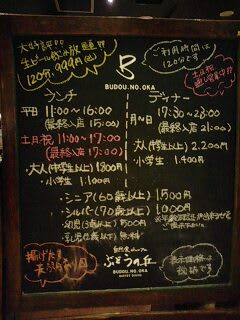 大好評!!
生ビール飲み放題!!
120分999円(込)
B
BUDOU.NO.OKA
ご利用時間は
120分です
土日祝
ランチ
平日 11:00~16:00
(最終入店 15:00)
土日祝 11:00~17:00
(最終入店 17:00)
・大人(中学生以上)1800円
・小学生 1.100円
ディナー
月~日 17:30~23:00
(最終入店 21:00)
・大人(中学生以上)2.200円
・小学生 1.400円
・シニア(60歳以上)1500円
・シルバー(70歳以上)1000円
・幼児(3歳以上)500円
・乳児(2歳以下)無料
揚げたて
天ぷら
自然食ビュッフェ
ぶどうの丘
BUDOU.NO.OKA
BUFFET DINING
表示価格は
税抜です